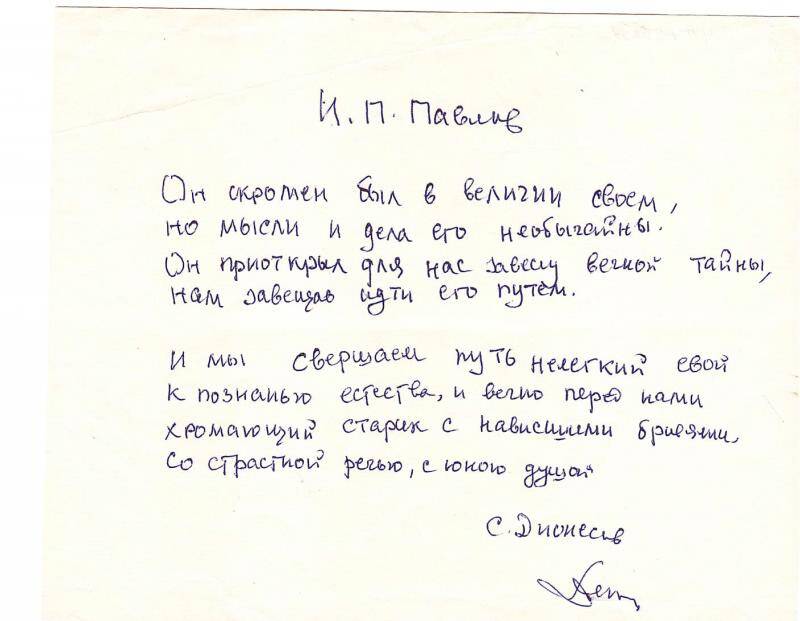 И. П. Павлов
Он скромен был в величии своем,
но мысли и дела его необычайны.
Он приоткрыл для нас завесу вечной тайны,
Нам завещав идти его путем.
И мы свершаем путь нелегкий свой
К познанью естества, и вечно перед нами
хромающий старик с нависшими бровями,
Со страстной речью, с юною душой
С. Дионесов